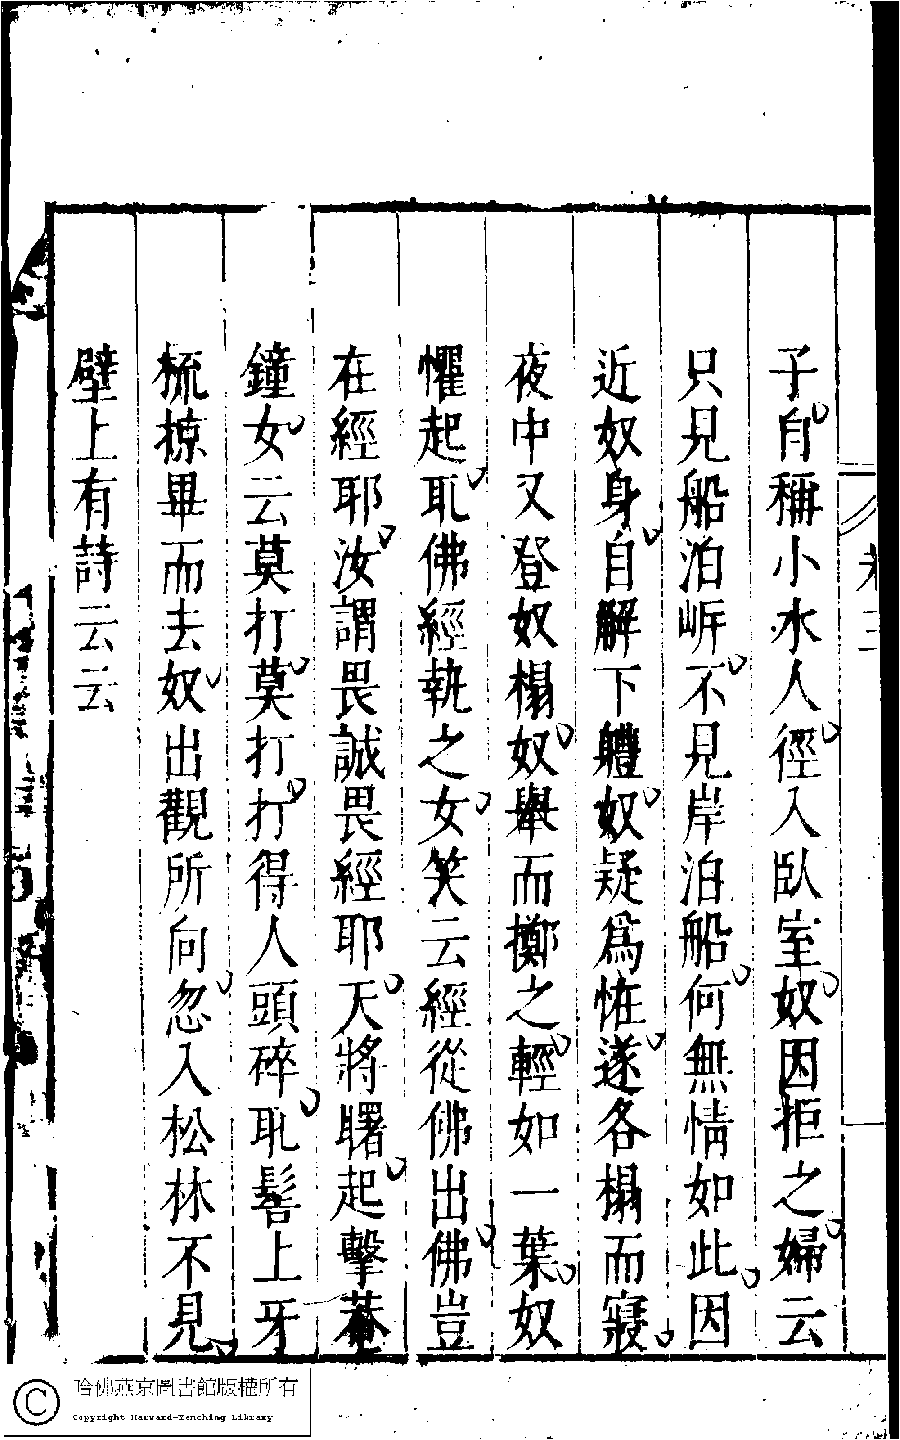 子自稱小水人徑入臥室奴因拒之婦云
只見船泊岍不見岸泊船何無情如此因
近奴身自解下軆奴疑爲恠遂各榻而寢
夜中又登奴榻奴舉而擲之輕如一葉奴
懼起耴佛經執之女笑云經從佛出佛豈
在經耶汝謂畏誠畏經耶天將曙起擊菴
鐘女云莫打莫打打得人頭碎耴髻上牙
梳掠畢而去奴出觀所向忽入松林不見
壁上有詩云云
哈佛燕京圖書館版權所有
Copyright Harvard-Yenching Library